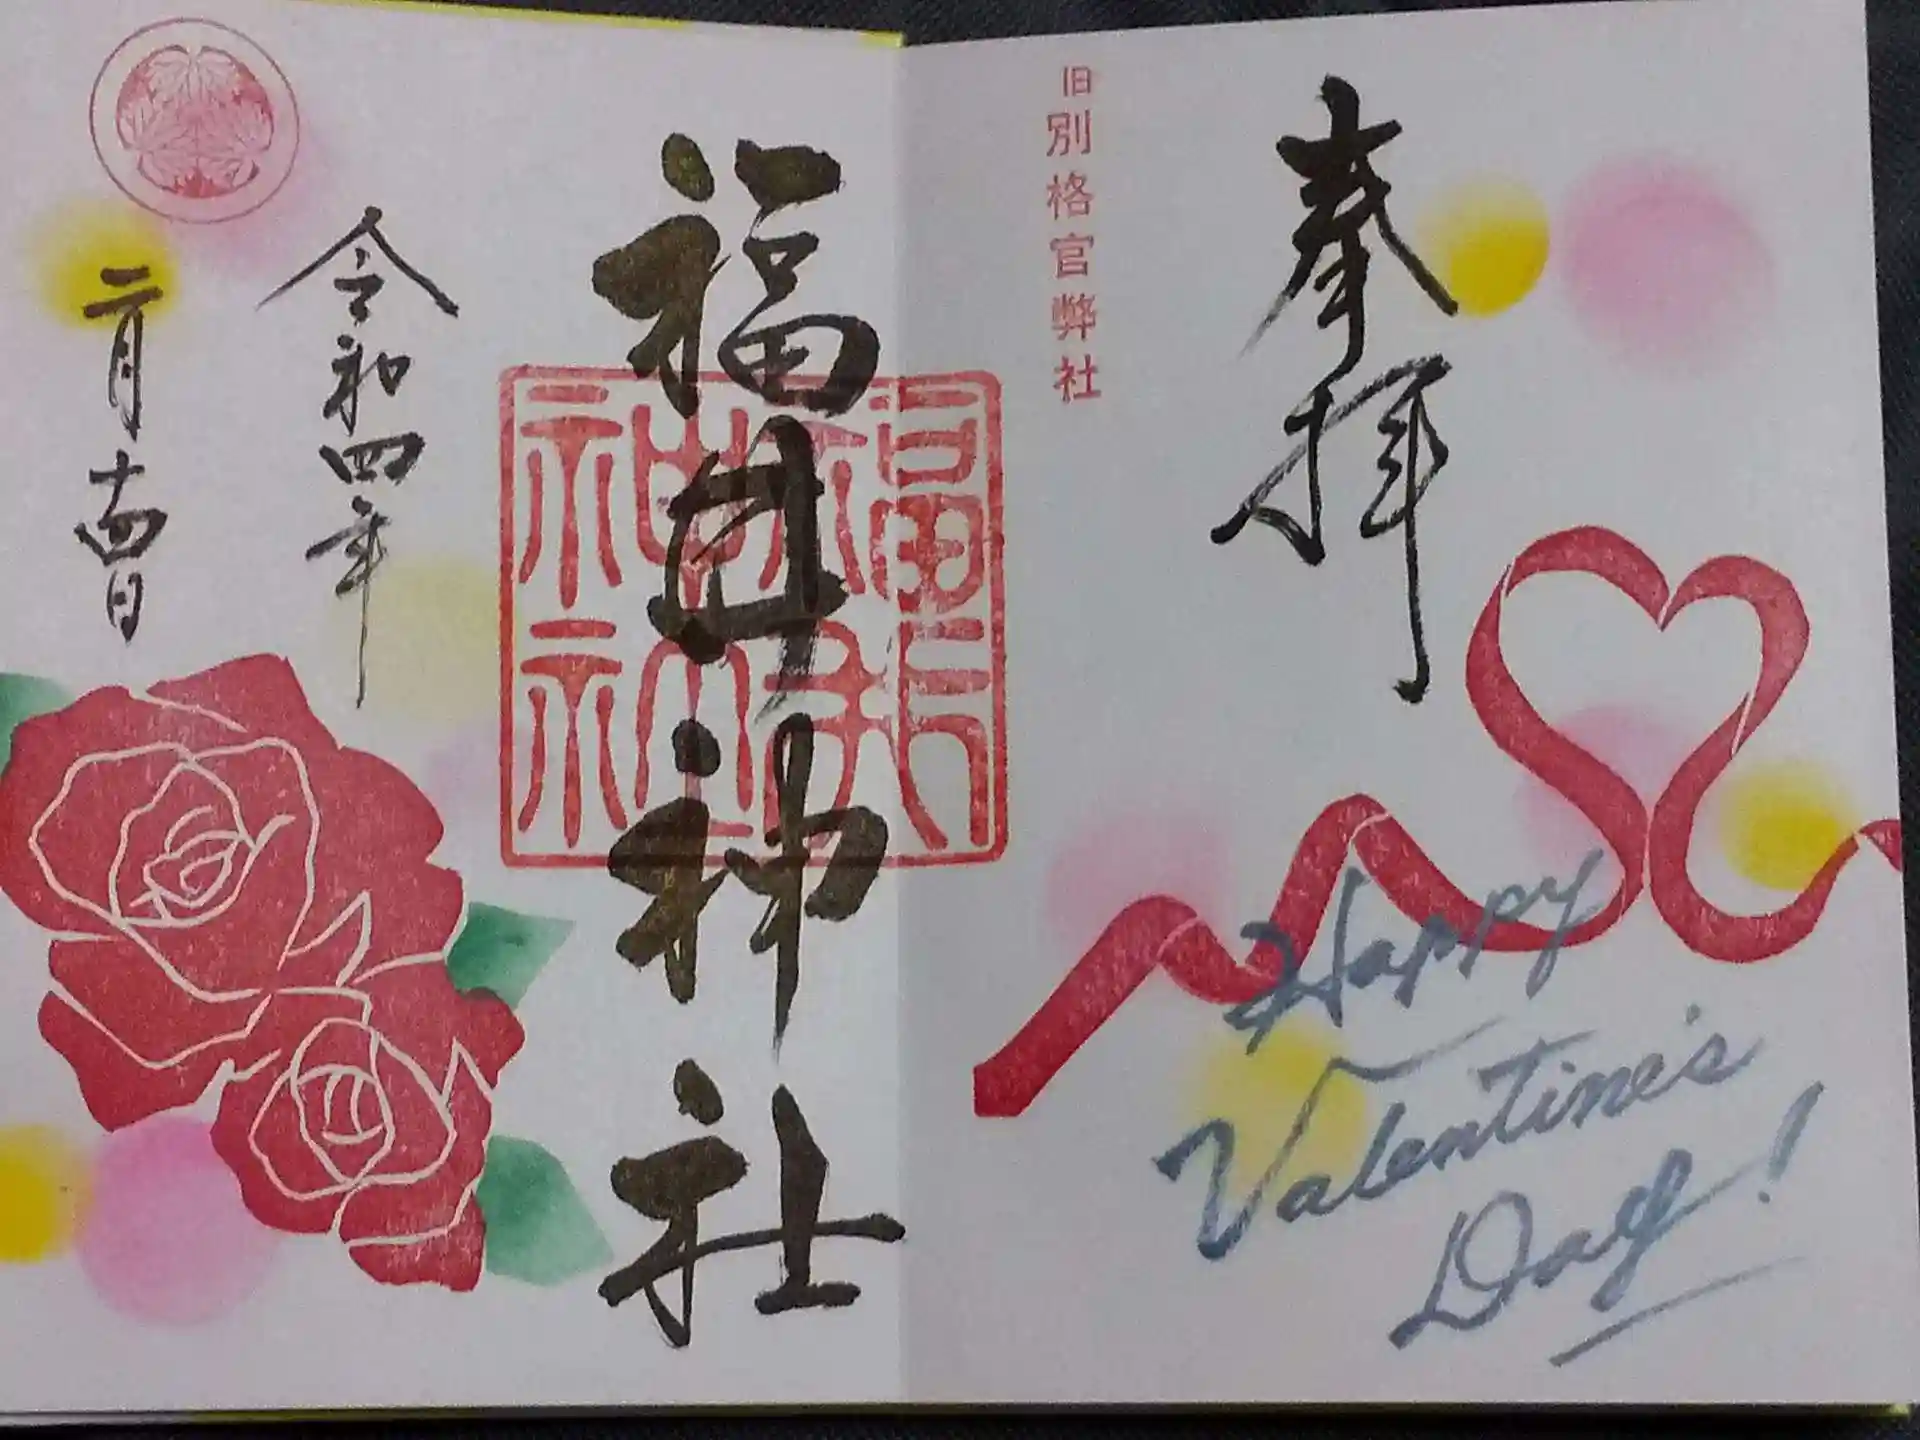 奉拝
旧別格官弊社
福井神社
福井神社
令和四年
二月十四日
Happy
Valentine's
Day!